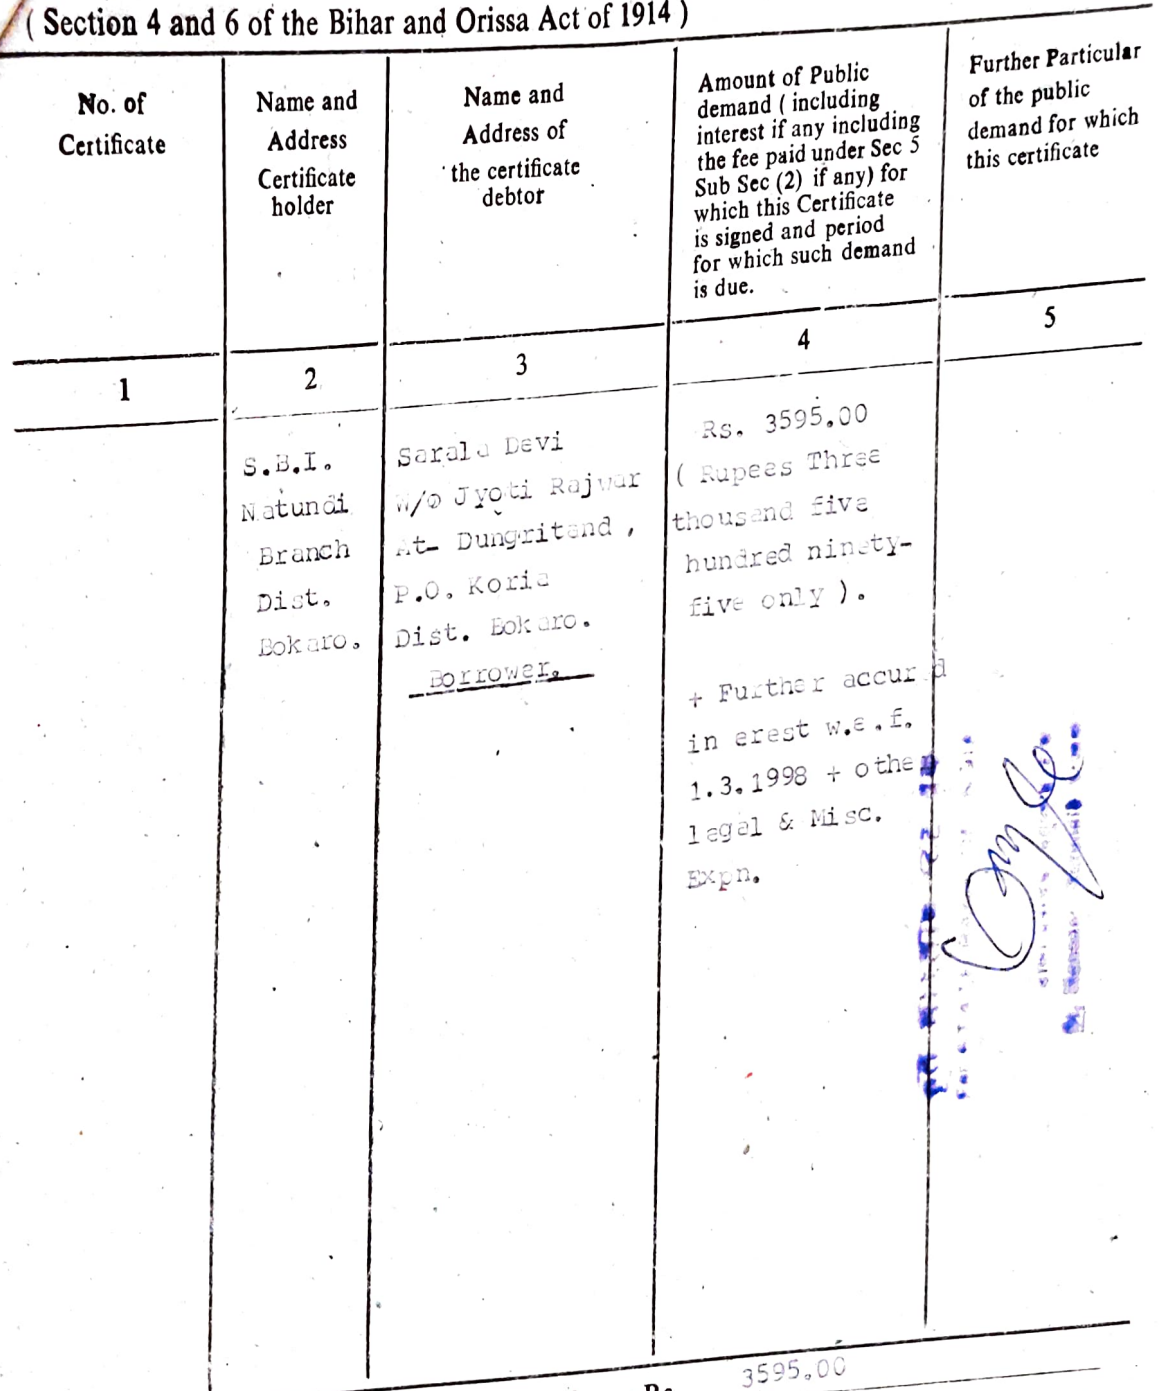 ( Section 4 and 6 of the Bihar and Orissa Act of 1914 )
No. of
Certificate
Name and
Address
Certificate
holder
Name and
Address of
the certificate
debtor
Amount of Public
demand ( including
interest if any including
the fee paid under Sec 5
Sub Sec (2) if any) for
which this Certificate
is signed and period
for which such demand
is due.
Further Particular
of the public
demand for which
this certificate
1
2
3
4
5
S.B.I.
Natundi
Branch
Dist.
Bokaro.
Sarala Devi
W/o Jyoti Rajwar
At- Dungritand ,
P.O. Koria
Dist. Bokaro.
Borrower.
Rs. 3595.00
( Rupees Three
thousand five
hundred ninety-
five only ).
+ Further accur d
in erest w.e.f.
1.3.1998 + othe
legal & Misc.
Expn.
Rs
3595.00